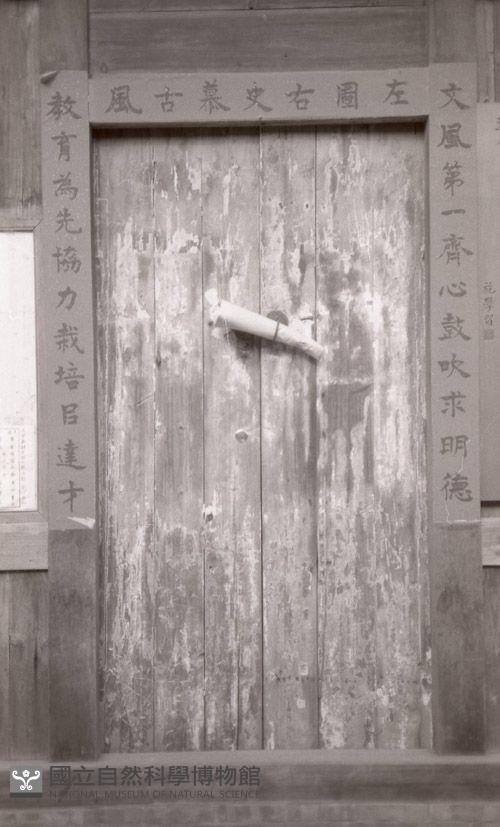 左圖右史慕古風
文風第一齊心鼓吹求明德
教育為先協力栽培呂達才
國立自然科學博物館
NATIONAL MUSEUM OF NATURAL SCIENCE